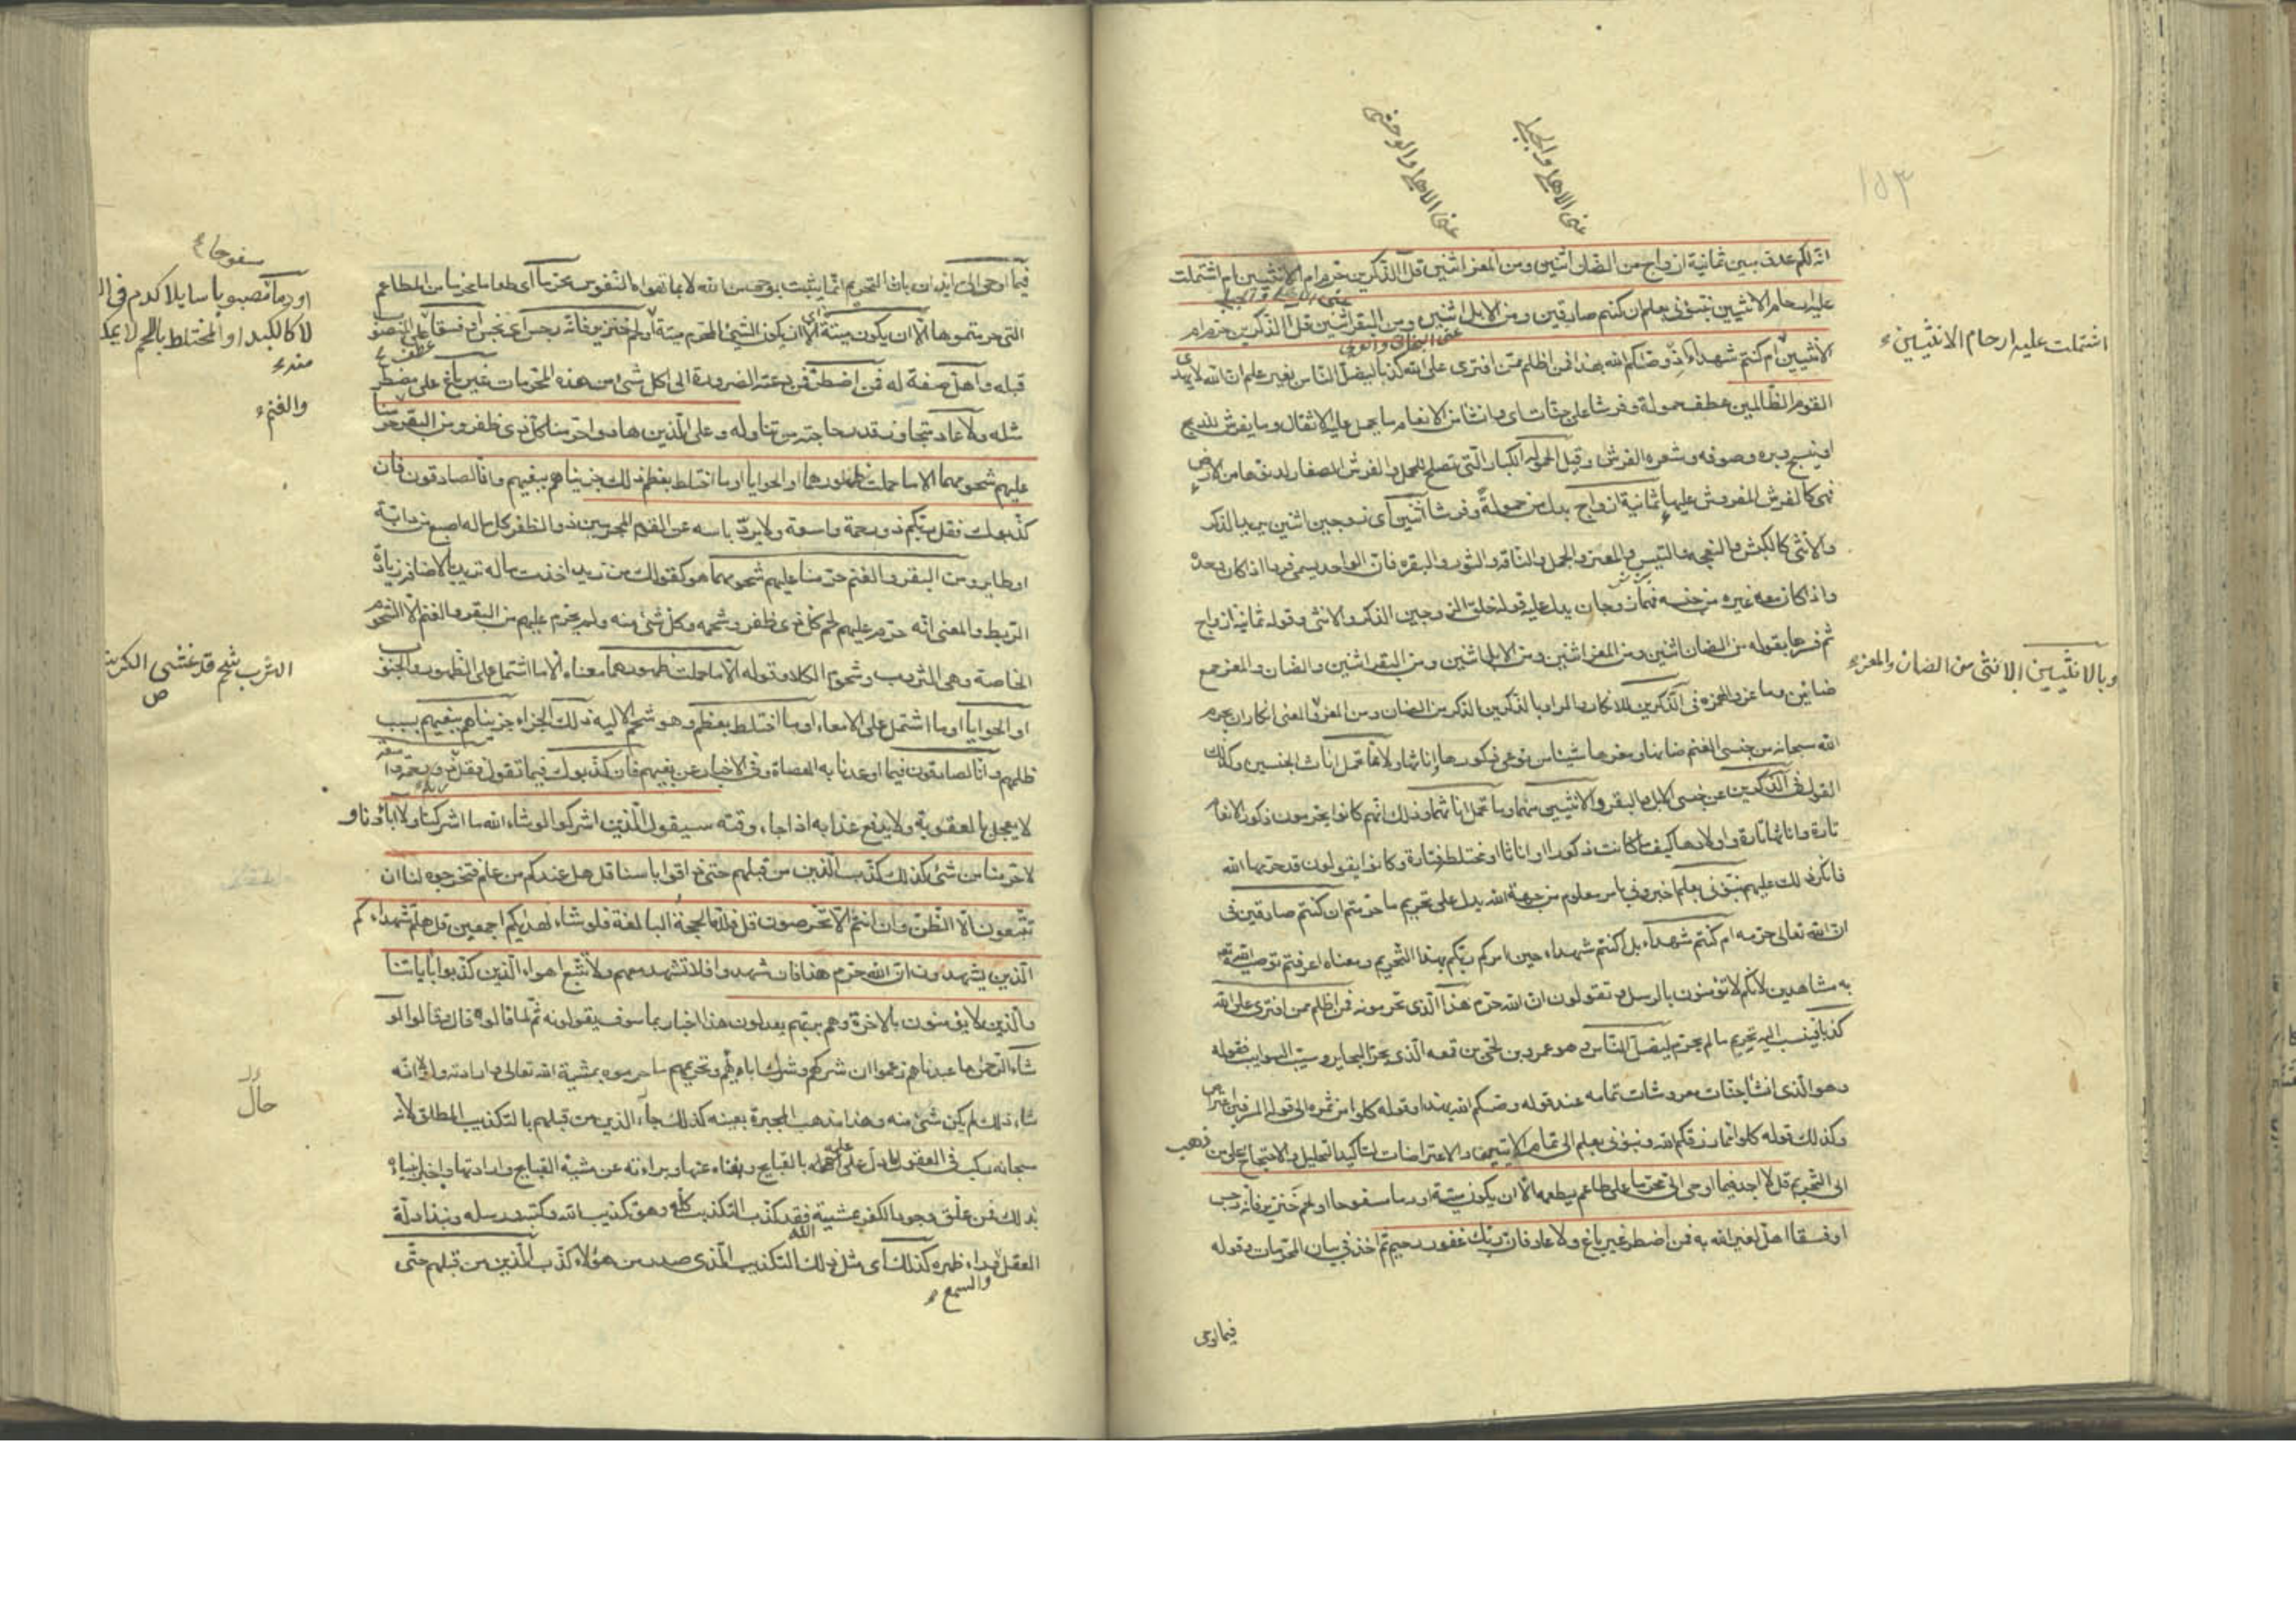 ١٥٣
عنى الاهلى والجبلى
عنى الاهلى والوحشى
انه لكم عدو مبين ثمانية ازواج من الضان اثنين ومن المعز اثنين قل آلذكرين حرم ام الانثيين ام اشتملت
عليه ارحام الانثيين نبئونى بعلم ان كنتم صادقين ومن الابل اثنين ومن البقر اثنين قل آلذكرين حرم ام
الانثيين ام كنتم شهداء اذ وصاكم الله بهذا فمن اظلم ممن افترى على الله كذبا ليضل الناس بغير علم ان الله لا يهدى
اشتملت عليه ارحام الانثيين
القوم الظالمين عطف حمولة وفرشا على جنات اى وانشا من الانعام ما يحمل عليه الاثقال وما يفرش للذبح
او ينسج وبره وصوفه وشعره الفرش وقيل الحمولة الكبار التى تصلح للحمل والفرش الصغار لدنوها من الارض
فهى كالفرش المفروش عليها ثمانية ازواج بدل من حمولة وفرشا اثنين اى زوجين اثنين يريد الذكر
والانثى كالكبش والنعجه والتيس والمعز والجمل والناقه والثور والبقره فان الواحد يسمى فردا اذا كان وحده
واذا كان معه غيره من جنسه فهما زوجان يدل عليه قوله خلق الزوجين الذكر والانثى وقوله ثمانية ازواج
ثم فسرها بقوله من الضان اثنين ومن المعز اثنين ومن الابل اثنين ومن البقر اثنين والضان والمعز جمع
وبالانثيين الانثى من الضان والمعز
ضائن وماعز والهمزه فى آلذكرين للانكار والمراد بالذكرين الذكر من الضان ومن المعز والمعنى انكار ان يحرم
الله سبحانه من جنسى الغنم ضانها ومعزها شيئا من نوعى ذكورها واناثها ولا مما تحمل اناث الجنسين وكذلك
القول فى آلذكرين من جنسى الابل والبقر والانثيين منهما وما تحمل اناثهما وذلك انهم كانوا يحرمون ذكور الانعام
تارة واناثها تارة واولادها كيف ما كانت ذكورا او اناثا او مختلطة تارة وكانوا يقولون قد حرمها الله
فانكر ذلك عليهم نبئونى بعلم اخبرونى بامر معلوم من جهة الله يدل على تحريم ما حرمتم ان كنتم صادقين فى
ان الله تعالى حرمه ام كنتم شهداء بل اكنتم شهداء حين امركم ربكم بهذا التحريم ومعناه اعرفتم توصية الله
به مشاهدين لانكم لا تؤمنون بالرسل وتقولون ان الله حرم هذا الذى تحرمونه فمن اظلم ممن افترى على الله
كذبا فينسب اليه تحريم ما لم يحرم ليضل الناس وهو عمرو بن لحى بن قمعه الذى بحر البحاير وسيب السوايب فقوله
وهو الذى انشا جنات معروشات تمامه عند قوله وصيكم الله بهذا وقوله كلوا من ثمره الى قوله المسرفين اعتراض
وكذلك قوله كلوا مما رزقكم الله ونبؤنى بعلم الى تمام الايتين والاعتراضات لتاكيد التحليل والاحتجاج على من ذهب
الى التحريم قل لا اجد فيما اوحى الى محرما على طاعم يطعمه الا ان يكون ميتة او دما مسفوحا او لحم خنزير فانه رجس
او فسقا اهل لغير الله به فمن اضطر غير باغ ولا عاد فان ربك غفور رحيم ثم اخذ فى بيان المحرمات وقوله
فيما اوحى
فيما اوحى الى ايذان بان التحريم انما يثبت بوحى من الله لا بما تهواه النفوس محرما اى طعاما محرما من المطاعم
التى حرمتموها الا ان يكون ميتة الا ان يكون الشئ المحرم ميتة او لحم خنزير فانه رجس اى نجس او فسقا عطف على المنصوب
مسفوحا
او دما مصبوبا سايلا كدم فى
لا كالكبد او المختلط باللحم لا يمكن
منه
قبله واهل صفة له فمن اضطر فمن دعته الضرورة الى اكل شئ من هذه المحرمات غير باغ على مضطر
مثله ولا عاد متجاوز قدر حاجته من تناوله وعلى الذين هادوا حرمنا كل ذى ظفر ومن البقر حرمنا
والغنم
عليهم شحومهما الا ما حملت ظهورهما او الحوايا او ما اختلط بعظم ذلك جزيناهم ببغيهم وانا لصادقون فان
كذبوك فقل ربكم ذو رحمة واسعة ولا يرد باسه عن القوم المجرمين ذو الظفر كل ما له اصبع من دابة
او طاير ومن البقر والغنم حرمنا عليهم شحومهما هو كقولك من زيد اخذت ماله تريد بالاضافه زيادة
الربط والمعنى انه حرم عليهم لحم كل ذى ظفر وشحمه وكل شئ منه ولم يحرم عليهم من البقر والغنم الا الشحوم
الخاصة وهى الثروب وشحوم الكلا وقوله الا ما حملت ظهورهما معناه الا ما اشتمل على الظهور والجنوب
الثرب شحم قد غشى الكرش
ص
او الحوايا او ما اشتمل على الامعاء او ما اختلط بعظم وهو شحم الالية ذلك الجزاء جزيناهم ببغيهم بسبب
ظلمهم وانا لصادقون فيما اوعدنا به العصاة وفى الاخبار عن بغيهم فان كذبوك فيما تقول فقل ربكم ذو رحمة
لا يعجل بالعقوبة ولا يدفع عذابه اذا جاء وقته سيقول الذين اشركوا لو شاء الله ما اشركنا ولا اباؤنا و
لا حرمنا من شئ كذلك كذب الذين من قبلهم حتى ذاقوا باسنا قل هل عندكم من علم فتخرجوه لنا ان
تتبعون الا الظن وان انتم الا تخرصون قل فلله الحجة البالغة فلو شاء لهديكم اجمعين قل هلم شهداءكم
الذين يشهدون ان الله حرم هذا فان شهدوا فلا تشهد معهم ولا تتبع اهواء الذين كذبوا باياتنا
والذين لا يؤمنون بالاخرة وهم بربهم يعدلون هذا اخبار بما سوف يقولونه ثم لما قالوه قال وقالوا لو
شاء الرحمن ما عبدناهم زعموا ان شركهم وشرك ابائهم وتحريمهم ما حرموه بمشية الله تعالى وارادته ولولا انه
حال
شاء ذلك لم يكن شئ منه وهذا مذهب المجبرة بعينه كذلك جاء الذين من قبلهم بالتكذيب المطلق لانه
سبحانه ركب فى العقول ما دل على علمه بالقبايح وبغناه عنها وبراءته عن مشية القبايح وارادتها واخبر انبياءه
بذلك فمن علق وجود الكفر بمشية الله فقد كذب التكذيب كله وهو تكذيب الله وكتبه ورسله ونبذ ادلة
العقل والسمع وراء ظهره كذلك اى مثل ذلك التكذيب الذى صدر من هؤلاء كذب الذين من قبلهم حتى